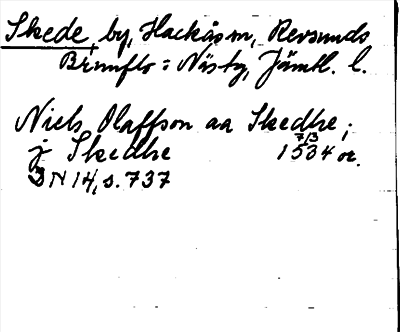 Skede, by, Hackås sn, Revsunds
Brunflo = Näs tg, Jämtl. l.
Niels Olaffson aa Skedhe;
j Skedhe 7/3 1534 or.
DN 14, s. 737